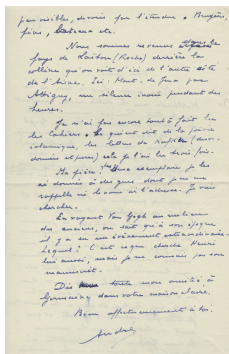 pas visibles, dévorés par l'étendue, Bruyère,
pins, bateaux etc.
Nous sommes revenus dans le
pays de (Roche) derrière la
colline qu'on voit d'ici de l'autre côté
de l'Aisne. Ici, Mont. de Jeux par
Attigny, un silence inouï pendant des
heures.
Je n'ai pas encore tout à fait lu
les Cahiers. Le génie est de la poésie
islamique, les lettres de
et je l'ai lu trois fois.
Ma pièce? Deux exemplaires je les
ai donnés à des gens dont je ne me
rappelle ni le nom ni l'adresse. Je vais
chercher.
En voyant Van Gogh au milieu
des anciens, on sait qu'à son époque
il y a eu un événement extraordinaire.
Lequel? C'est ce que cherche Henri
lui aussi, mais je ne connais pas son
manuscrit.
Dis toute mon amitié à
Germaine dans votre maison claire.
Bien affectueusement à toi.
André